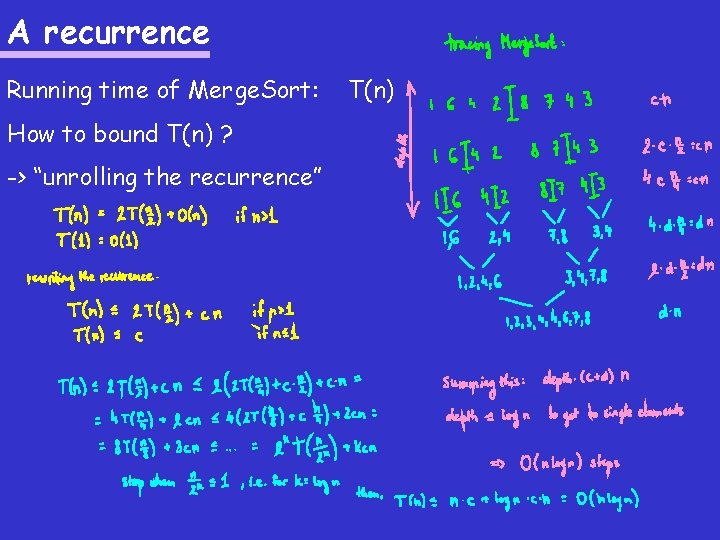 A recurrence
Running time of Merge.Sort: T(n)
How to bound T(n) ?
-> “unrolling the recurrence”
T(n) = 2T(n/2) + O(n) if n>1
T(1) = O(1)
rewriting the recurrence:
T(n) ≤ 2T(n/2) + cn if n>1
T(n) ≤ c if n≤1
T(n) ≤ 2T(n/2) + cn ≤ 2(2T(n/4) + c·n/2) + c·n =
= 4T(n/4) + 2cn ≤ 4(2T(n/8) + c n/4) + 2cn =
= 8T(n/8) + 3cn ≤ ... = 2^k T(n/2^k) + kcn
stop when n/2^k ≤ 1, i.e. for k = log n
then, T(n) ≤ n·c + log n ·c·n = O(n log n)
tracing MergeSort:
1 6 4 2 8 7 4 3 cn
depth
1 6 4 2 8 7 4 3 2·c·n/2 = cn
1 6 4 2 8 7 4 3 4 c n/4 = cn
1,6 2,4 7,8 3,4 4·d·n/4 = dn
1,2,4,6 3,4,7,8 2·d·n/2 = dn
1,2,3,4,4,6,7,8 d·n
Summing this: depth·(c+d) n
depth ≤ log n to get to single elements
=> O(n log n) steps